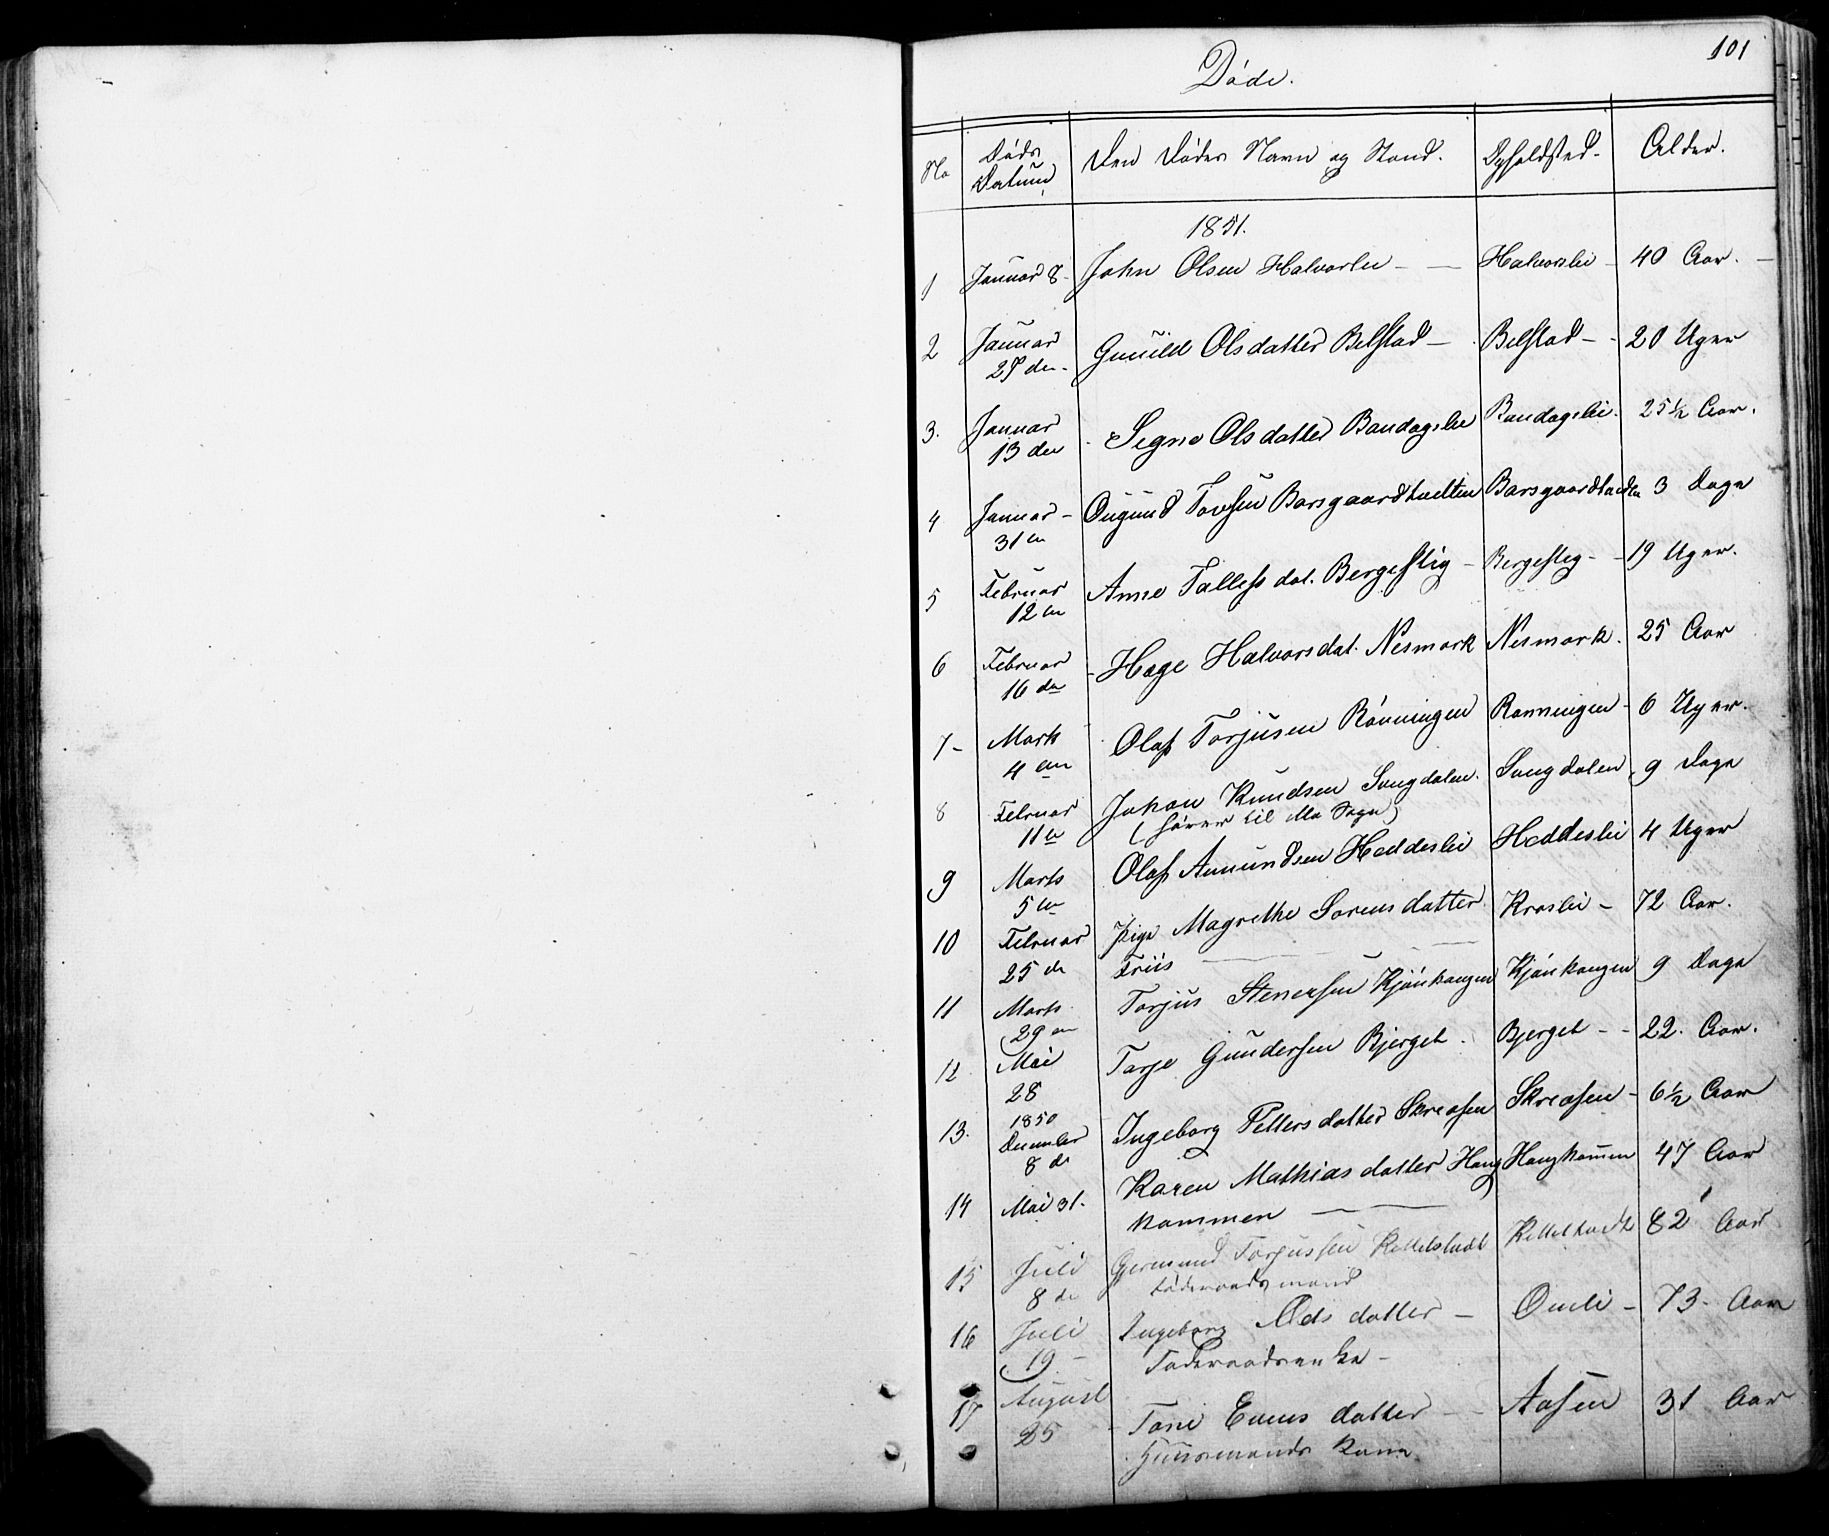 101
Døde.
No Døds Datum, Den Dødes Navn og Stand. Opholdsted. Alder.
1851.
1 Januar 8 - John Olsen Halvorlie - - Halvorslie - 40 Aar. -
2 Januar 27 den - Gunild Olsdatter Belstad - Belstad - - 20 Uger
3. Januar 13 den - Signe Olsdatter Bandagslie Bandagslie. 25½ Aar.
4 Januar - 31 en Ougund Tovsen Barsgaardtvedten Barsgaardtvedten 3 Dage
5 Februar 12 en Anne Tallefs dat. Bergestig - Bergestig - - 19 Uger.
6 Februar 16 den - Hage Halvorsdat. Nesmark Nesmark. 25 Aar
7 - Marts 4 en Olaf Torjusen Rønningen Rønningen - 6 Uger.
8 Februar 11 en Johan Knudsen Songdalen. Songdalen, 9 Dage
(hører til Mo Sogn)
9 Marts 5 en Olaf Amundsen Heddeslie Heddeslie 4 Uger
10 Februar 25 de Pige Magrethe Sorensdatter Kroslie - 72 Aar.
Friis
11 Marts 29 en Torjus Stenersen Kjønhaugen Kjønhaugen 9 Dage
12 Mai 28 Tarje Gundersen Bjerget. Bjerget - - 22. Aar.
13. 1850 December 8 de Ingeborg Pettersdatter Skreosen Skreosen - 6½ Aar
14 Mai 31. Karen Mathiasdatter Haug Haugkammen 47 Aar
kammen
15 Juli 8 de Gjermund Torjussen 82 Aar
Føderaadsmand
16 Juli 19 - Ingeborg Olsdatter - Omli - 73 - Aar
Føderaadsenke -
17 August 25 - Tone Evensdatter - - Aasen 31 Aar
Huusmands Kone